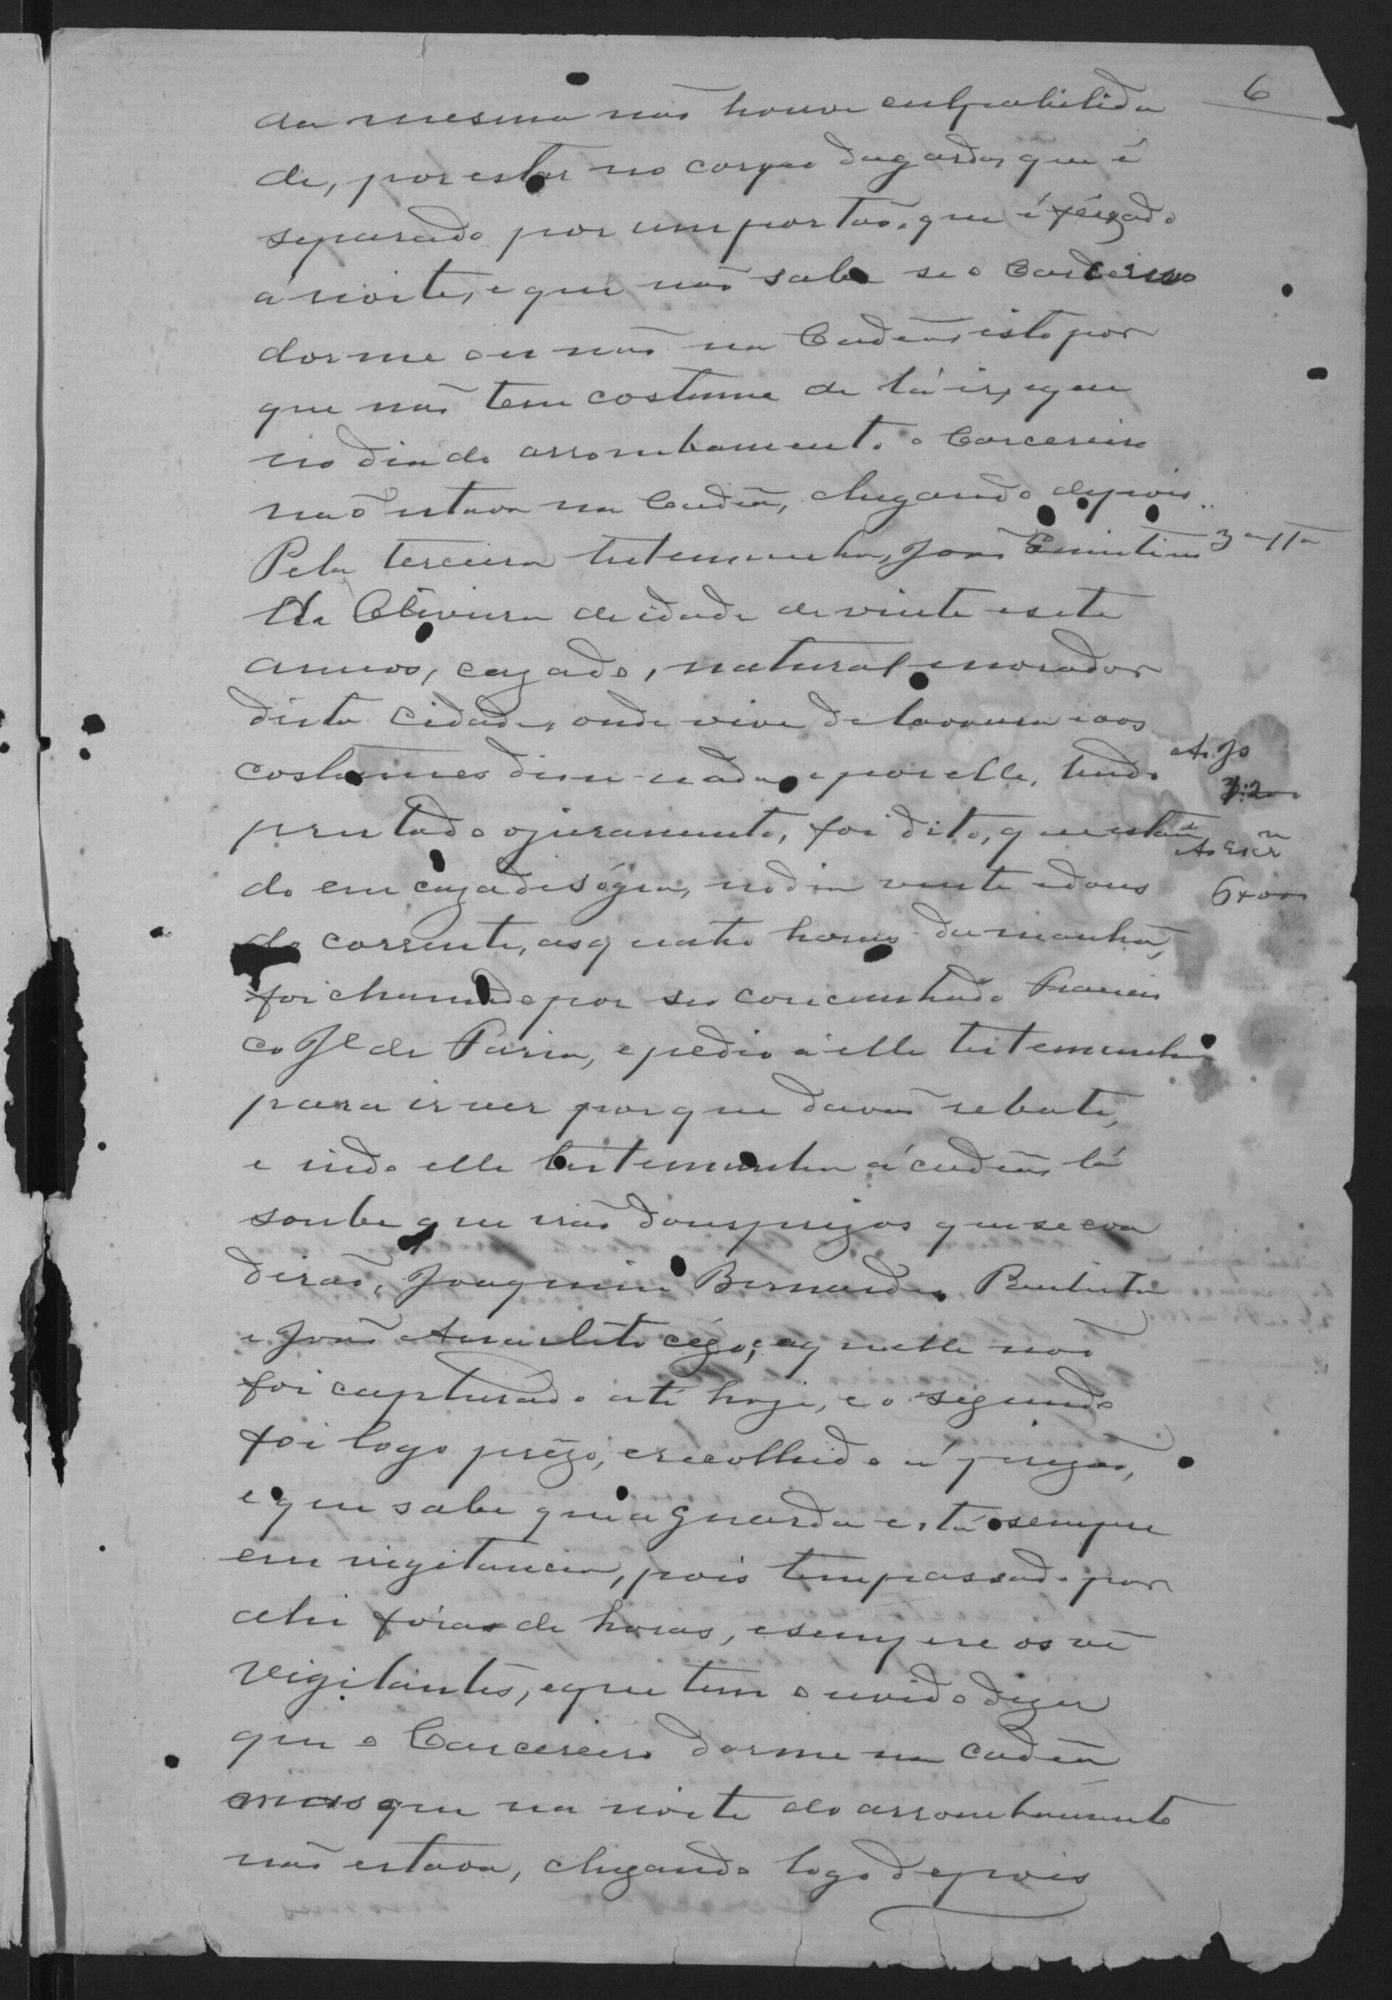 6
da mesma não houve culpabilida
de, por estar no corpo da guarda, que é
separado por um portão, que é feixado
á noite, e que não sabe se o Carcereiro
dorme ou não na Cadêa, isto por
que não tem costume de lá ir, e que
no dia do arrombamento o Carcereiro
não estava na Cadêa, chegando depois.
Pela terceira testemunha, João 3ª tta
de Oliveira de idade de vinte e sete
annos, cazado, natural e morador
desta cidade, onde vive de lavoura e aos
costumes disse nada, e por elle, tendo
prestado o juramento, foi dito, que estan
do em caza de sógra, no dia vinte e dous
do corrente, as quatro horas da manhã,
foi chamado por seo concunhado Francis
co Jé de Faria, e pedio a elle testemunha
para ir ver por que davão rebate,
e indo elle testemunha á cadêa, lá
soube que erão dous prezos que se eva
dirão, Joaquim Bernardes Baptista
e João Anacleto cégo, e aquelle não
foi capturado até hoje, e o segundo
foi logo prêzo, e recolhido á prizão,
e que sabe que a guarda está sempre
em vigilancia, pois tem passado por
ahi fóra de horas, e sempre os vê
vigilantes, e que tem ouvido dizer
que o Carcereiro dorme na cadêa
mas que na noite do arrombamento
não estava, chegando logo depois
Ao Jo
Ao Escr